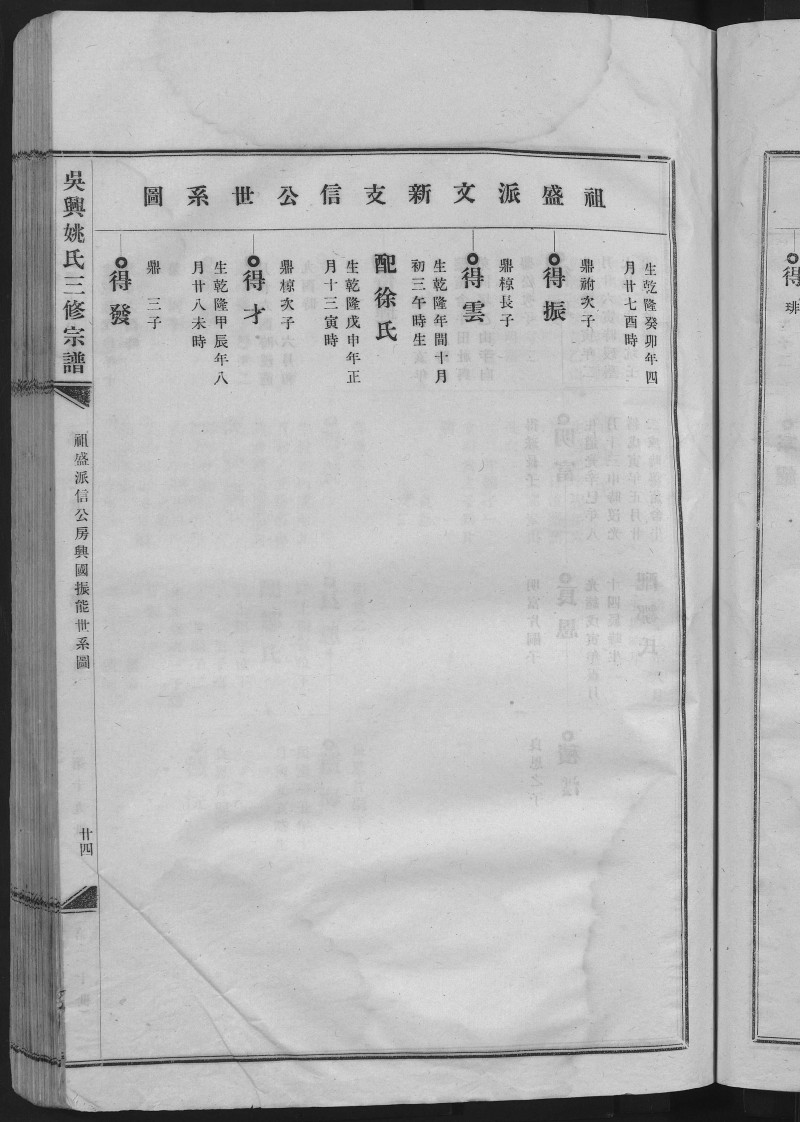 祖盛派文新支信公世系圖
生乾隆癸卯年四
月廿七酉時
得振
鼎祔次子
鼎椋長子
得雲
生乾隆年間十月
初三午時生
配徐氏
生乾隆戊申年正
月十三寅時
鼎椋次子
得才
生乾隆甲辰年八
月廿八未時
鼎 三子
得發
吳興姚氏三修宗譜
祖盛派信公房興國振能世系圖
廿四
得